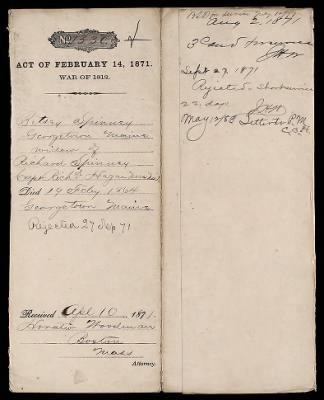 No
ACT OF FEBRUARY 14, 1871.
WAR OF 1812.
Betsey Spinney
Georgetown Maine
widow of
Richard Spinney
Capt Richd
Died 19 Feby 1864
Georgetown Maine
Rejected 27 Sep 71
Received Apl 10 1871.
Horatio Woodman
Boston
Mass
Attorney.
Aug 2, 1871
3d Aud
Sept 27 1871
Rejected - Short service
22 days
May
Letter to P.M.